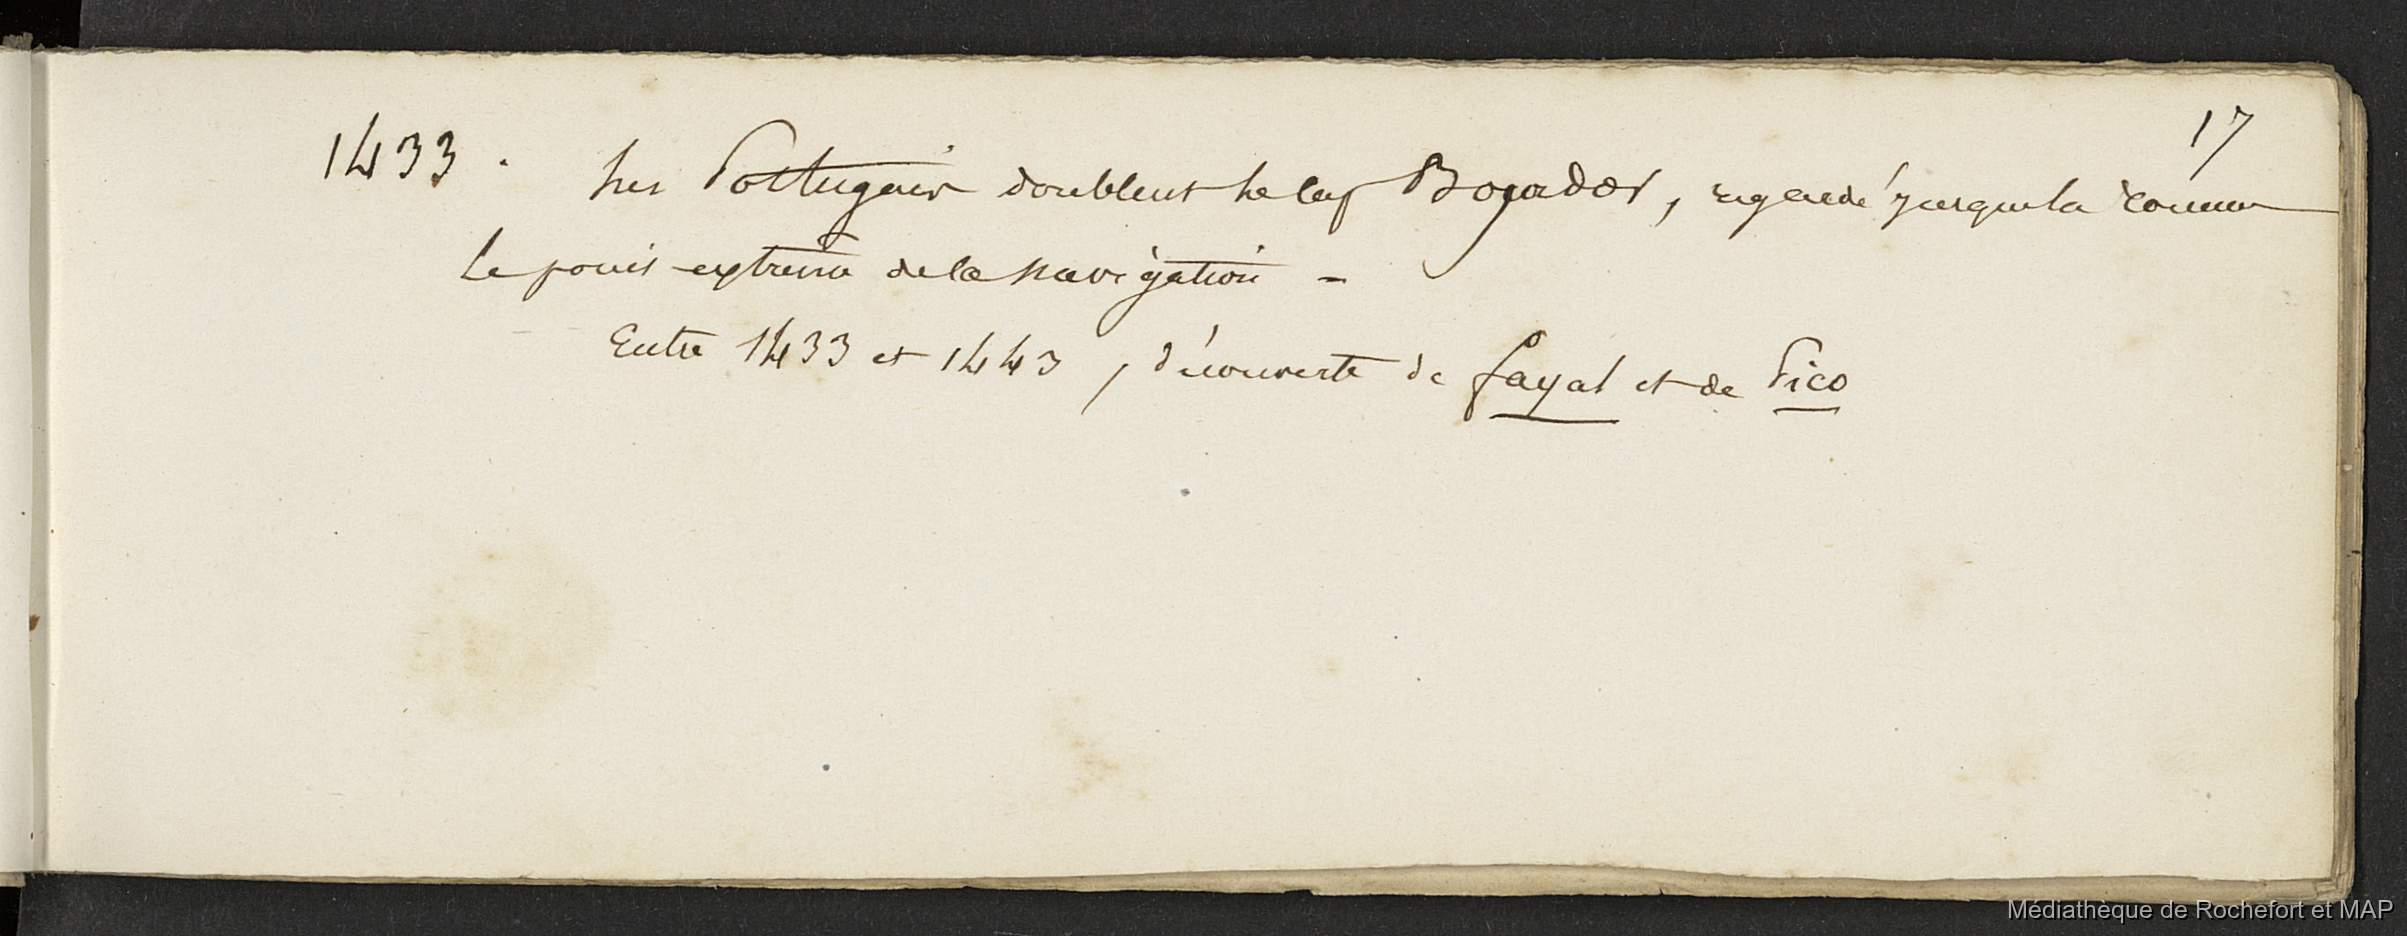 17
1433. Les Portugais doublent le Cap Bojador, regardé jusque là comme
le point extrême de la navigation -
Entre 1433 et 1443, découverte de fayal et de Pico
Médiathèque de Rochefort et MAP